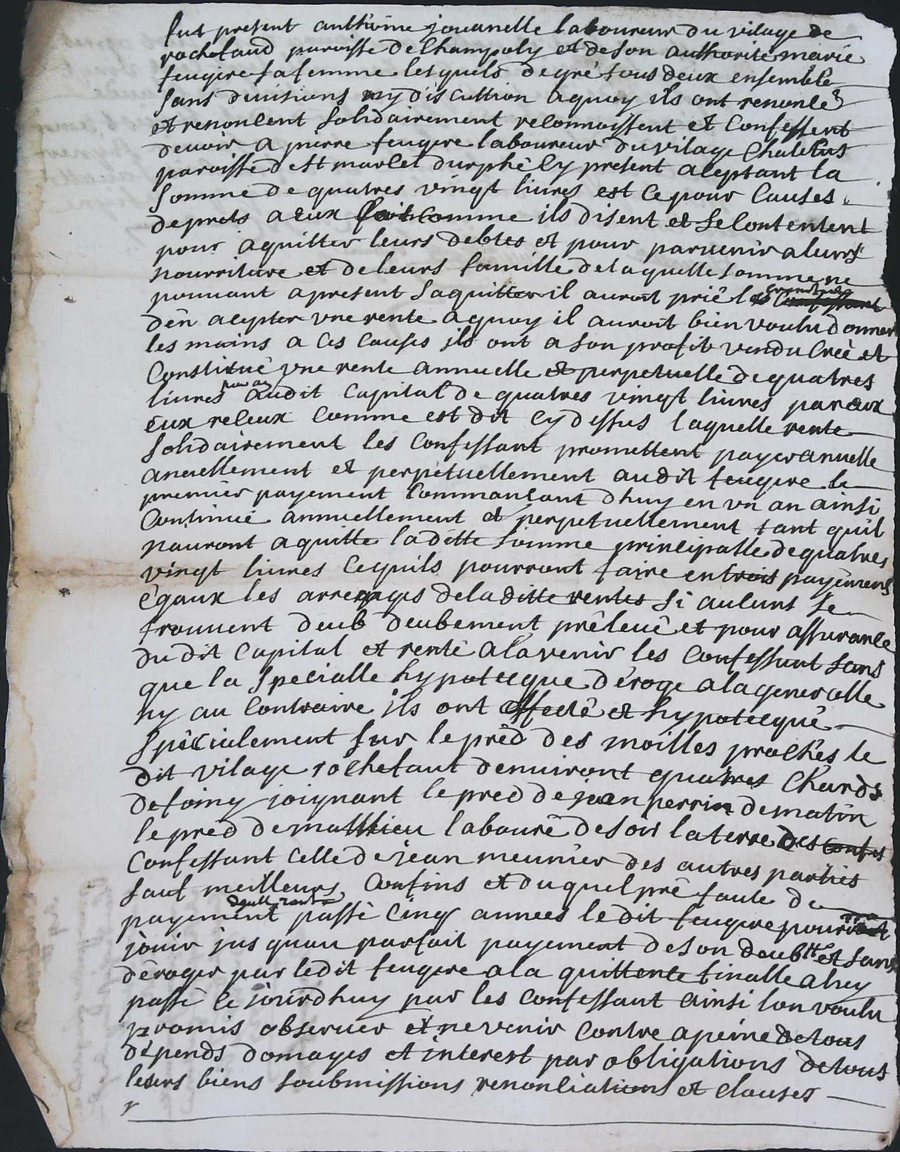 fut present anthoine jouanelle laboureur du vilage de
rochefaud parroisse de Champoly et de son authorité marie
feugere sa femme lesquels de gré tous deux ensemble
sans divisions ny discution aquoy ils ont renoncé
et renoncent solidairement reconnoissent et Confessent
devoir a pierre feugere laboureur du vilage
parroisse de st marcel durphé Cy present aceptant la
somme de quatres vingt livres est ce pour Causes
de prets a eux fait comme ils disent et se contentent
pour aquitter leurs debtes et pour parvenir a leurs
nourriture et de leurs famille de laquelle somme ne
pouvant apresent saquitter il auroit prié le
den acepter une rente aquoy il auroit bien voulu donner
les mains a ces causes ils ont a son profit vendu Creé et
Constitué une rente annuelle et perpetuelle de quatres
livres pour audit Capital de quatres vingt livres par eux
reseux comme est dit cy dessus laquelle rente
solidairement les Confessant promettent payer anuelle
anuellement et perpetuellement audit feugere le
premier payement Commancant dhuy en un an ainsi
Continué annuellement et perpetuellement tant quil
nauront aquitté la ditte somme principalle de quatres
vingt livres Cequils pourront faire en trois payements
Egaux les arrerages de la ditte rentes si aulcuns se
trouvent deub deubement prélevé et pour assurance
du dit Capital et rente a lavenir les Confessant sans
que la specialle hypotecque déroge a la generalle
ny au Contraire ils ont affecté et hypotecqué
spécialement sur le préd des moilles proches le
dit vilage rochefaut denviront quatres Chards
de foing joignant le pred de jean perrin de matin
le pred de mathieu labouré de soir la terre des
Confessant celle de jean meunier des autres parties
sauf meilleurs Confins et duquel pré faute de
payement passé Cinq années le dit feugere
jouir jusquau parfait payement de son deubtt et sans
déroger par ledit feugere a la quittence finalle a luy
passé Ce jourdhuy par les Confessant ainsi lon voulu
promis observer et ne venir contre a peine de tous
dépends domages et interest par obligations de tous
leurs biens soubmissions renonciations et clauses